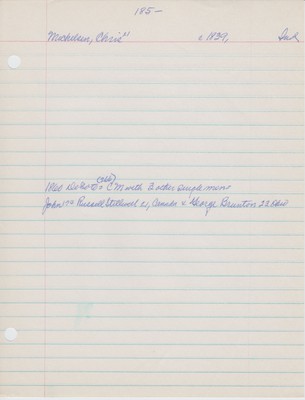 185-
Mickelsen, Chris" c 1839, Ind
(266)
1860 Co CM with 2 other single men
John Russell Stillwell 21, Canada & George Brunton 28